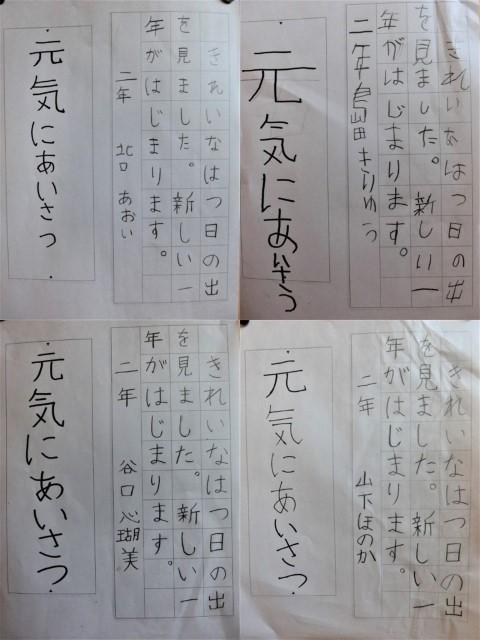 きれいなはつ日の出
を見ました。新しい一
年がはじまります。
二年 北口 あおい
元気にあいさつ
きれいなはつ日の出
を見ました。新しい一
年がはじまります。
二年島田 きりゅう
元気にあいさつ
きれいなはつ日の出
を見ました。新しい一
年がはじまります。
二年 谷口 心瑚美
元気にあいさつ
きれいなはつ日の出
を見ました。新しい一
年がはじまります。
二年 山下ほのか
元気にあいさつ